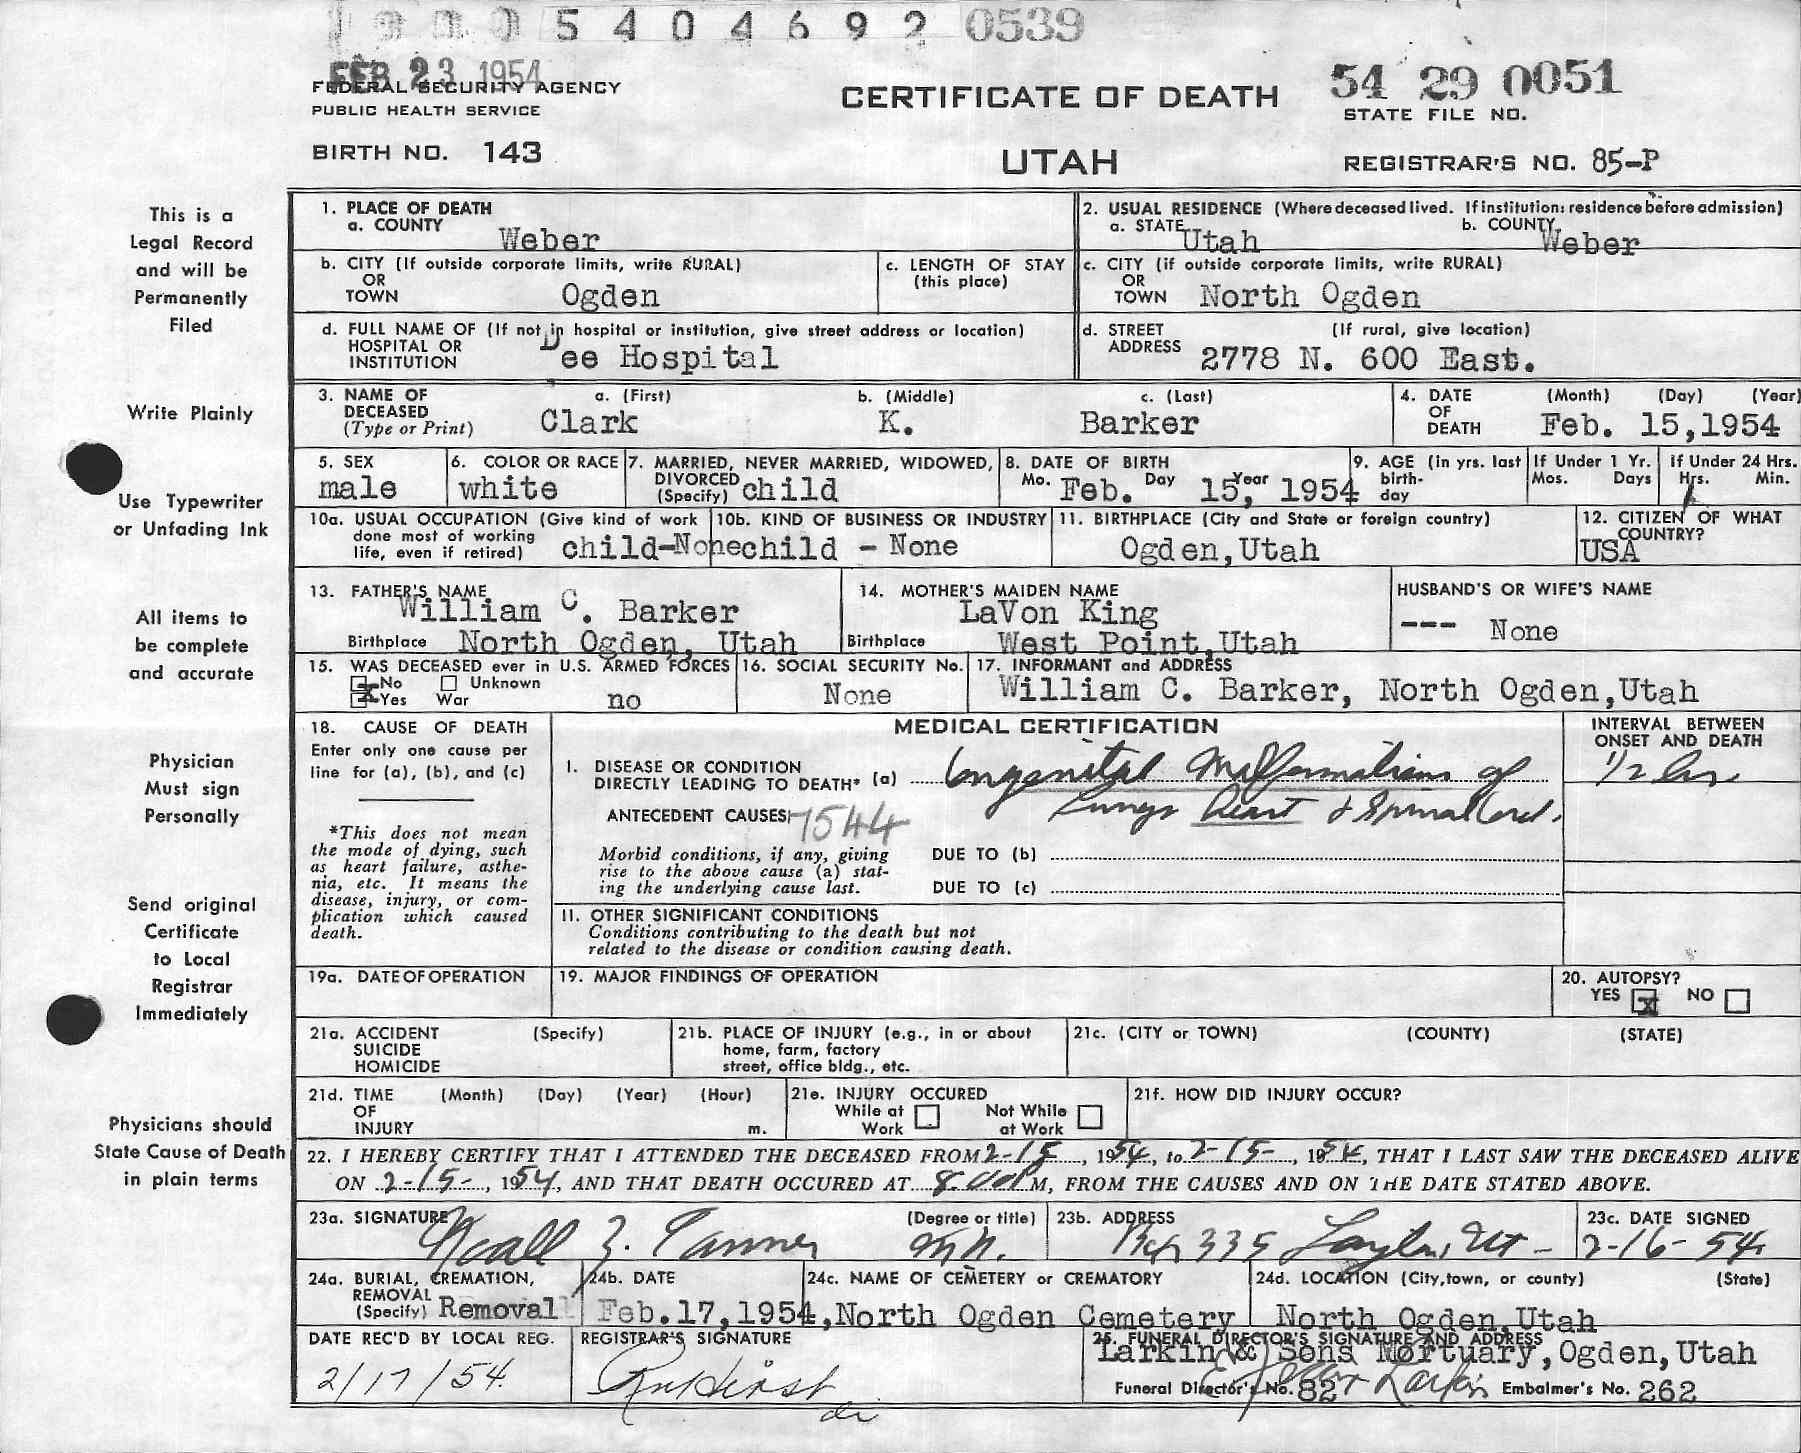 5 4 0 4 6 9 2 0539
FEB 23 1954
FEDERAL SECURITY AGENCY
PUBLIC HEALTH SERVICE
BIRTH NO. 143
CERTIFICATE OF DEATH
UTAH
54 29 0051
STATE FILE NO.
REGISTRAR'S NO. 85-P
This is a
Legal Record
and will be
Permanently
Filed
Write Plainly
Use Typewriter
or Unfading Ink
All items to
be complete
and accurate
Physician
Must sign
Personally
Send original
Certificate
to Local
Registrar
Immediately
Physicians should
State Cause of Death
in plain terms
1. PLACE OF DEATH
a. COUNTY Weber
2. USUAL RESIDENCE (Where deceased lived. If institution: residence before admission)
a. STATE Utah b. COUNTY Weber
b. CITY (If outside corporate limits, write RURAL)
OR
TOWN Ogden
c. LENGTH OF STAY
(this place)
c. CITY (if outside corporate limits, write RURAL)
OR
TOWN North Ogden
d. FULL NAME OF (If not in hospital or institution, give street address or location)
HOSPITAL OR
INSTITUTION Dee Hospital
d. STREET (If rural, give location)
ADDRESS 2778 N. 600 East.
3. NAME OF a. (First) b. (Middle) c. (Last)
DECEASED
(Type or Print) Clark K. Barker
4. DATE (Month) (Day) (Year)
OF
DEATH Feb. 15,1954
5. SEX
male
6. COLOR OR RACE
white
7. MARRIED, NEVER MARRIED, WIDOWED,
DIVORCED
(Specify) child
8. DATE OF BIRTH
Mo. Feb. Day 15, Year 1954
9. AGE (in yrs. last
birth-
day
If Under 1 Yr.
Mos. Days
If Under 24 Hrs.
Hrs. Min.
10a. USUAL OCCUPATION (Give kind of work
done most of working
life, even if retired) child-None
10b. KIND OF BUSINESS OR INDUSTRY
child - None
11. BIRTHPLACE (City and State or foreign country)
Ogden,Utah
12. CITIZEN OF WHAT
COUNTRY?
USA
13. FATHER'S NAME
William C. Barker
Birthplace North Ogden, Utah
14. MOTHER'S MAIDEN NAME
LaVon King
Birthplace West Point,Utah
HUSBAND'S OR WIFE'S NAME
--- None
15. WAS DECEASED ever in U.S. ARMED FORCES
No Unknown
x Yes War no
16. SOCIAL SECURITY No.
None
17. INFORMANT and ADDRESS
William C. Barker, North Ogden,Utah
18. CAUSE OF DEATH
Enter only one cause per
line for (a), (b), and (c)
*This does not mean
the mode of dying, such
as heart failure, asthe-
nia, etc. It means the
disease, injury, or com-
plication which caused
death.
MEDICAL CERTIFICATION
INTERVAL BETWEEN
ONSET AND DEATH
I. DISEASE OR CONDITION
DIRECTLY LEADING TO DEATH* (a) Congenital Malformations of
Lungs Heart & Spinal Cord.
1/2 hr
ANTECEDENT CAUSES 7544
Morbid conditions, if any, giving
rise to the above cause (a) stat-
ing the underlying cause last.
DUE TO (b)
DUE TO (c)
II. OTHER SIGNIFICANT CONDITIONS
Conditions contributing to the death but not
related to the disease or condition causing death.
19a. DATE OF OPERATION
19. MAJOR FINDINGS OF OPERATION
20. AUTOPSY?
YES x NO
21a. ACCIDENT (Specify)
SUICIDE
HOMICIDE
21b. PLACE OF INJURY (e.g., in or about
home, farm, factory
street, office bldg., etc.
21c. (CITY or TOWN) (COUNTY) (STATE)
21d. TIME (Month) (Day) (Year) (Hour)
OF
INJURY m.
21e. INJURY OCCURED
While at
Work
Not While
at Work
21f. HOW DID INJURY OCCUR?
22. I HEREBY CERTIFY THAT I ATTENDED THE DECEASED FROM 2-15, 1954, to 2-15-, 1954, THAT I LAST SAW THE DECEASED ALIVE
ON 2-15-, 1954, AND THAT DEATH OCCURED AT 8: M, FROM THE CAUSES AND ON THE DATE STATED ABOVE.
23a. SIGNATURE (Degree or title)
Noall Z. Tanner M.D.
23b. ADDRESS
Box 335 Layton, Ut -
23c. DATE SIGNED
2-16-54
24a. BURIAL, CREMATION,
REMOVAL
(Specify) Removal
24b. DATE
Feb.17,1954,
24c. NAME OF CEMETERY or CREMATORY
North Ogden Cemetery
24d. LOCATION (City,town, or county) (State)
North Ogden,Utah
DATE REC'D BY LOCAL REG.
2/17/54.
REGISTRAR'S SIGNATURE
25. FUNERAL DIRECTOR'S SIGNATURE AND ADDRESS
Larkin & Sons Mortuary,Ogden,Utah
Larkin
Funeral Director's No. 827 Embalmer's No. 262